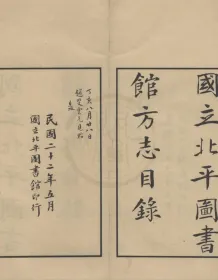 國立北平圖書
館方志目錄
丁亥八月廿八日
民國二十二年五月
國立北平圖書館印行